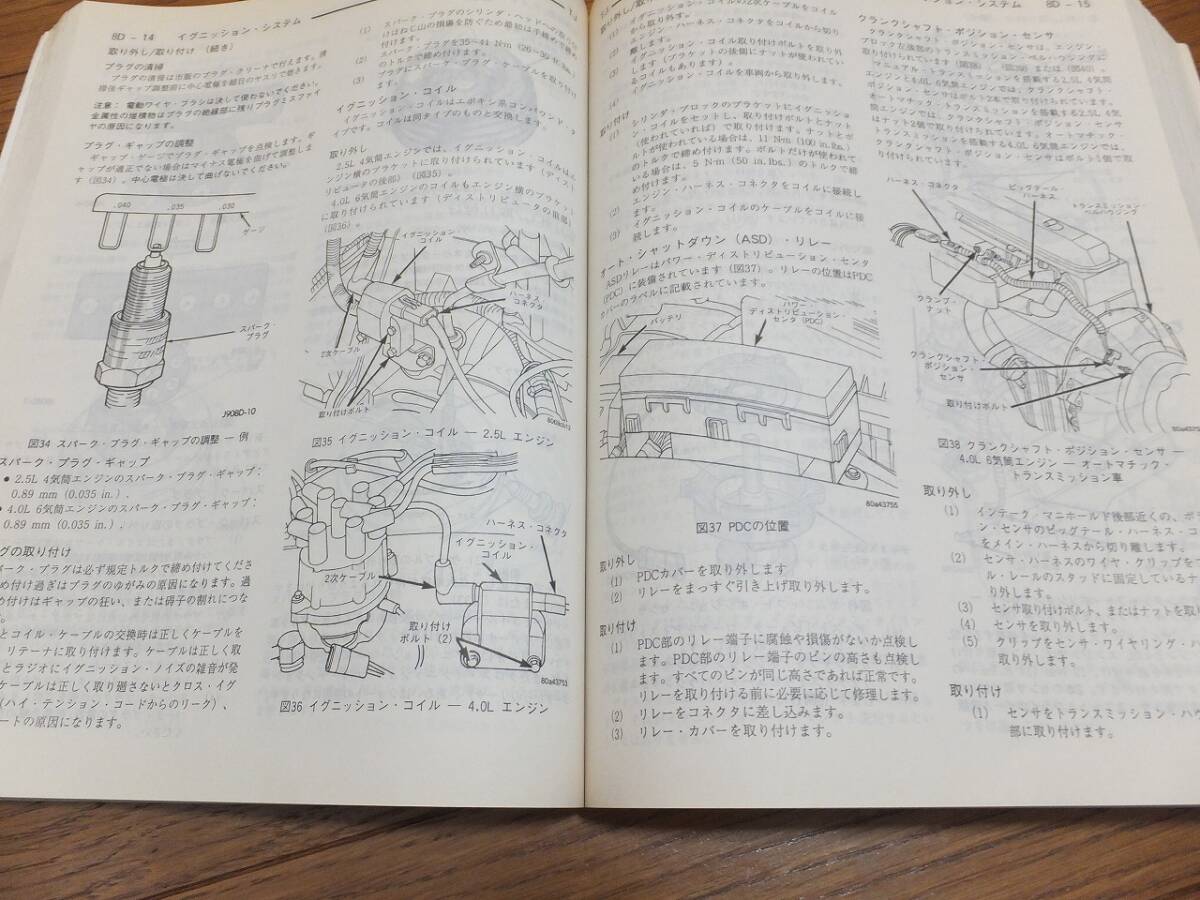 8D - 14 イグニッション・システム
取り外し/取り付け (続き)
プラグの清掃
プラグの清掃は市販のプラグ・クリーナで行えます。清
掃後ギャップ調整前に中心電極を細目のヤスリで磨きます。
注意: 電動ワイヤ・ブラシは決して使わないでください。
金属性の堆積物はプラグの絶縁部に残りプラグミスファイ
ヤの原因になります。
プラグ・ギャップの調整
ギャップ・ゲージでプラグ・ギャップを点検します。ギ
ャップが適正でない場合はマイナス電極を曲げて調整しま
す (図34)。中心電極は決して曲げないでください。
.040 .035 .030
ゲージ
スパーク・
プラグ
J908D-10
図34 スパーク・プラグ・ギャップの調整 ― 例
スパーク・プラグ・ギャップ
● 2.5L 4気筒エンジンのスパーク・プラグ・ギャップ:
0.89 mm (0.035 in.).
● 4.0L 6気筒エンジンのスパーク・プラグ・ギャップ:
0.89 mm (0.035 in.).
グの取り付け
ーク・プラグは必ず規定トルクで締め付けてくださ
め付け過ぎはプラグのゆがみの原因になります。過
め付けはギャップの狂い、または碍子の割れにつな
す。
とコイル・ケーブルの交換時は正しくケーブルを
リテーナに取り付けます。ケーブルは正しく取
とラジオにイグニッション・ノイズの雑音が発
ケーブルは正しく取り廻さないとクロス・イグ
(ハイ・テンション・コードからのリーク)、
ートの原因になります。
(1) スパーク・プラグのシリンダ・ヘッドへの取り付
けはねじ山の損傷を防ぐため最初は手締めで締め
付けます。
(2) スパーク・プラグを35~41 N·m (26~30 ft.lbs.)
のトルクで締め付けます。
(3) プラグにスパーク・プラグ・ケーブルを取り
付けます。
イグニッション・コイル
イグニッション・コイルはエポキシ系コンパウンド・タ
イプです。コイルは同タイプのものと交換します。
取り外し
2.5L 4気筒エンジンでは、イグニッション・コイルはエ
ンジン横のブラケットに取り付けられています (ディスト
リビュータの後部) (図35)。
4.0L 6気筒エンジンのコイルもエンジン横のブラケット
に取り付けられています (ディストリビュータの前部)
(図36)。
イグニッション・
コイル
ハーネス・
コネクタ
2次ケーブル
取り付けボルト
図35 イグニッション・コイル ― 2.5L エンジン
ハーネス・コネクタ
イグニッション・
コイル
2次ケーブル
取り付け
ボルト (2)
80a43753
図36 イグニッション・コイル ― 4.0L エンジン
イグニッション・システム 8D - 15
取り外し/取り
(1) イグニッション・コイルの2次ケーブルをコイル
から取り外す。
(2) エンジン・ハーネス・コネクタをコイルから切り
離します。
(3) イグニッション・コイル取り付けボルトを取り外
します (ブラケットの後側にナットが使われてい
るコイルもあります)。
(4) イグニッション・コイルを車両から取り外します。
取り付け
(1) シリンダ・ブロックのブラケットにイグニッショ
ン・コイルをセットし、取り付けボルトとナット
(使われていれば) で取り付けます。ナットとボ
ルトが使われている場合は、11 N·m (100 in.lbs.)
のトルクで締め付けます。ボルトだけが使われて
いる場合は、5 N·m (50 in.lbs.) のトルクで締
め付けます。
(2) エンジン・ハーネス・コネクタをコイルに接続し
ます。
(3) イグニッション・コイルのケーブルをコイルに接
続します。
オート・シャットダウン (ASD)・リレー
ASDリレーはパワー・ディストリビューション・センタ
(PDC) に装備されています (図37)。リレーの位置はPDC
カバーのラベルに記載されています。
バッテリ
パワー・
ディストリビューション・
センタ (PDC)
80a43755
図37 PDCの位置
取り外し
(1) PDCカバーを取り外します
(2) リレーをまっすぐ引き上げ取り外します。
取り付け
(1) PDC部のリレー端子に腐蝕や損傷がないか点検し
ます。PDC部のリレー端子のピンの高さも点検し
ます。すべてのピンが同じ高さであれば正常です。
リレーを取り付ける前に必要に応じて修理します。
(2) リレーをコネクタに差し込みます。
(3) リレー・カバーを取り付けます。
クランクシャフト・ポジション・センサ
クランクシャフト・ポジション・センサは、エンジン・
ブロック左後部のトランスミッション・ベル・ハウジングに
取り付けられています (図38)、(図39) または (図40)。
マニュアル・トランスミッションを搭載する2.5L 4気筒
エンジンと4.0L 6気筒エンジンでは、クランクシャフト・
ポジション・センサはボルト2本で取り付けられています。
オートマチック・トランスミッションを搭載する2.5L 4気
筒エンジンでは、クランクシャフト・ポジション・センサ
はナット2個で取り付けられています。オートマチック・
トランスミッションを搭載する4.0L 6気筒エンジンでは、
クランクシャフト・ポジション・センサはボルト1個で取
り付けられています。
ハーネス・コネクタ
ピッグテール・
ハーネス
トランスミッション・
ベルハウジング
クランプ・
ナット
クランクシャフト・
ポジション・
センサ
取り付けボルト
図38 クランクシャフト・ポジション・センサ ―
4.0L 6気筒エンジン ― オートマチック・
トランスミッション車
取り外し
(1) インテーク・マニホールド後部近くの、ポジ
ン・センサのピッグテール・ハーネス・コ
をメイン・ハーネスから切り離します。
(2) センサ・ハーネスのワイヤ・クリップを
ル・レールのスタッドに固定している
り外します。
(3) センサ取り付けボルト、またはナットを取り
(4) センサを取り外します。
(5) クリップをセンサ・ワイヤリング・ハ
取り外します。
取り付け
(1) センサをトランスミッション・ハウ
部に取り付けます。